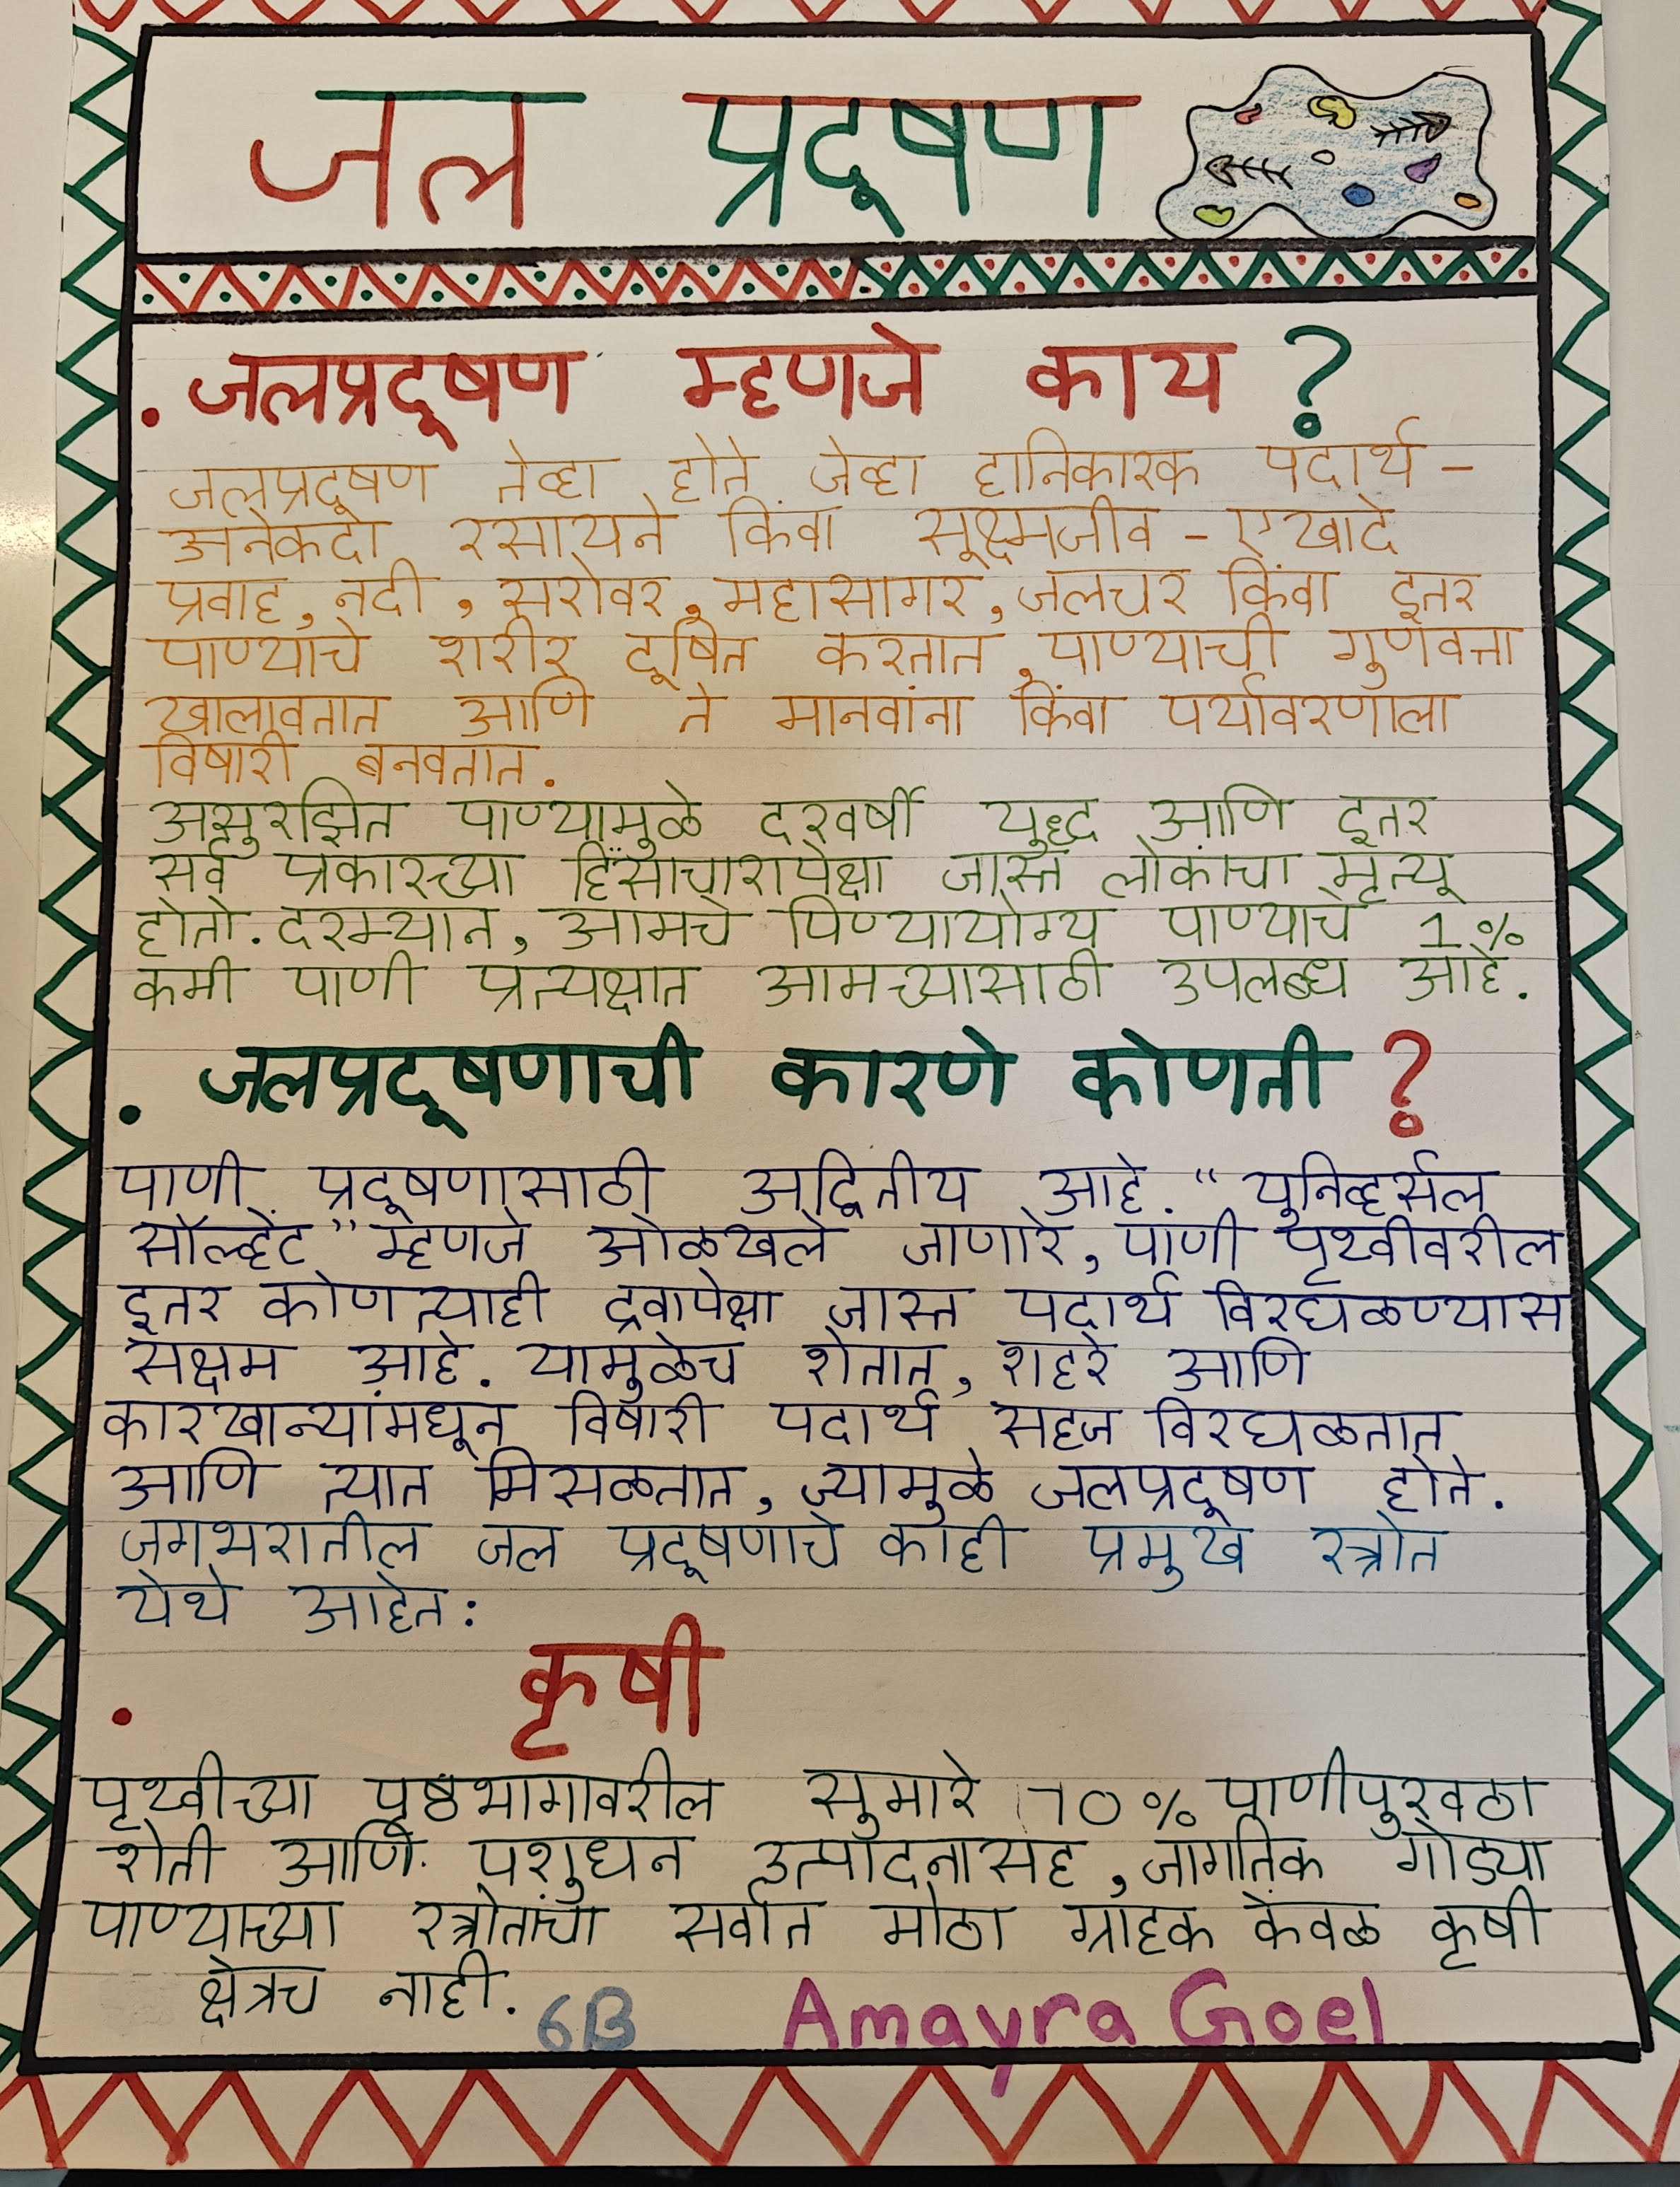 जल प्रदूषण
. जलप्रदूषण म्हणजे काय ?
जलप्रदूषण तेव्हा होते जेव्हा हानिकारक पदार्थ -
अनेकदा रसायने किंवा सूक्ष्मजीव - एखादे
प्रवाह, नदी, सरोवर, महासागर, जलचर किंवा इतर
पाण्याचे शरीर दूषित करतात, पाण्याची गुणवत्ता
खालावतात आणि ते मानवांना किंवा पर्यावरणाला
विषारी बनवतात.
असुरझित पाण्यामुळे दरवर्षी युद्ध आणि इतर
सर्व प्रकारच्या हिंसाचारापेक्षा जास्त लोकांचा मृत्यू
होतो. दरम्यान, आमचे पिण्यायोग्य पाण्याचे 1%
कमी पाणी प्रत्यक्षात आमच्यासाठी उपलब्ध आहे.
. जलप्रदूषणाची कारणे कोणती ?
पाणी प्रदूषणासाठी अद्वितीय आहे. "युनिव्हर्सल
सॉल्व्हेंट" म्हणजे ओळखले जाणारे, पाणी पृथ्वीवरील
इतर कोणत्याही द्रवापेक्षा जास्त पदार्थ विरघळण्यास
सक्षम आहे. यामुळेच शेतात, शहरे आणि
कारखान्यांमधून विषारी पदार्थ सहज विरघळतात
आणि त्यात मिसळतात, ज्यामुळे जलप्रदूषण होते.
जगभरातील जल प्रदूषणाचे काही प्रमुख स्त्रोत
येथे आहेत:
. कृषी
पृथ्वीच्या पृष्ठभागावरील सुमारे 70% पाणीपुरवठा
शेती आणि पशुधन उत्पादनासह, जागतिक गोड्या
पाण्याच्या स्त्रोतांचा सर्वात मोठा ग्राहक केवळ कृषी
क्षेत्रच नाही.
6B Amayra Goel